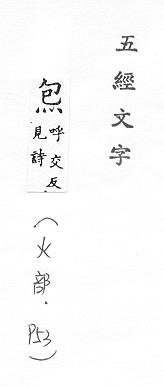 五經文字
炰
呼交反
見詩
(火部.P53)